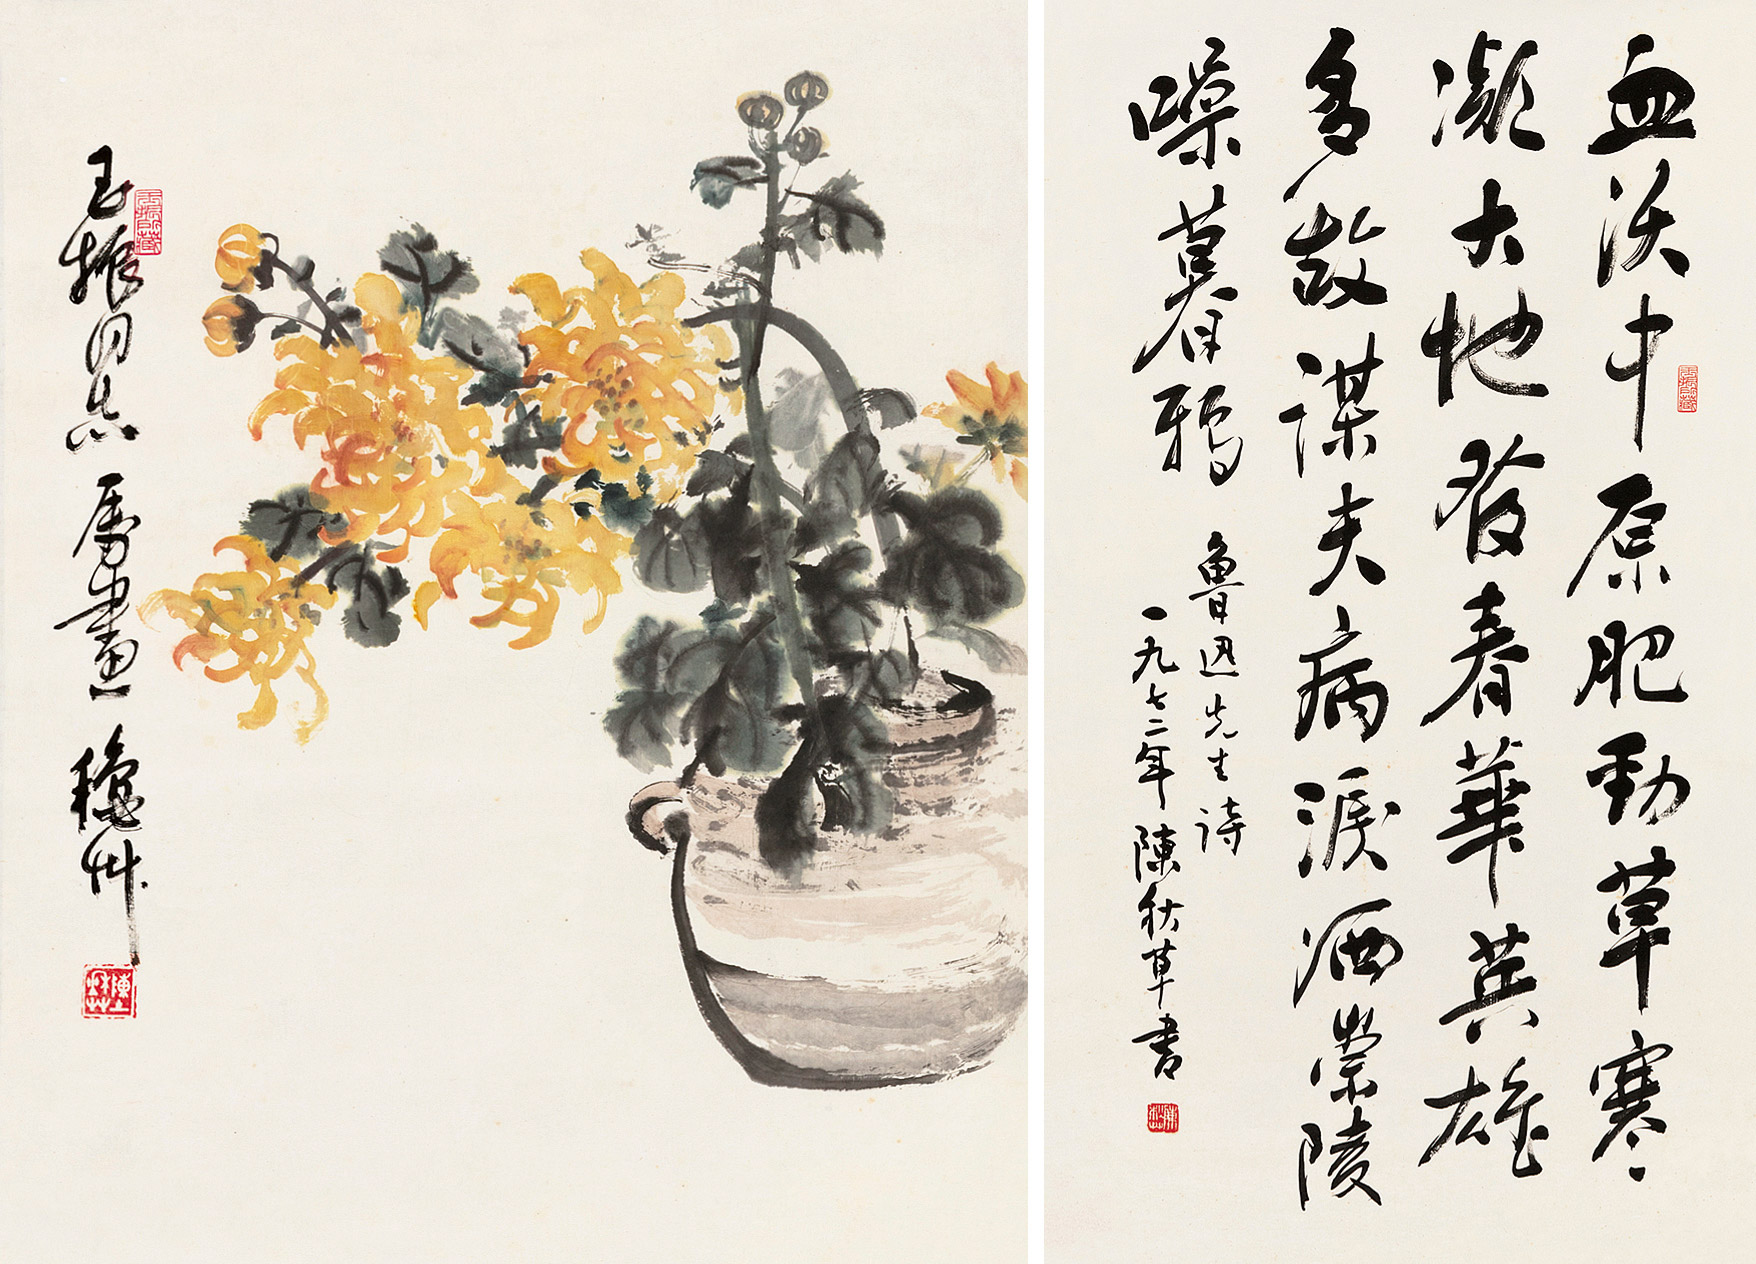 玉振同志屬畫 穐艸
玉振所藏
血沃中原肥勁草寒
凝大地發春華英雄
多故謀夫病淚洒崇陵
噪暮鴉
魯迅先生詩
一九七二年陳秋草書
玉振所藏